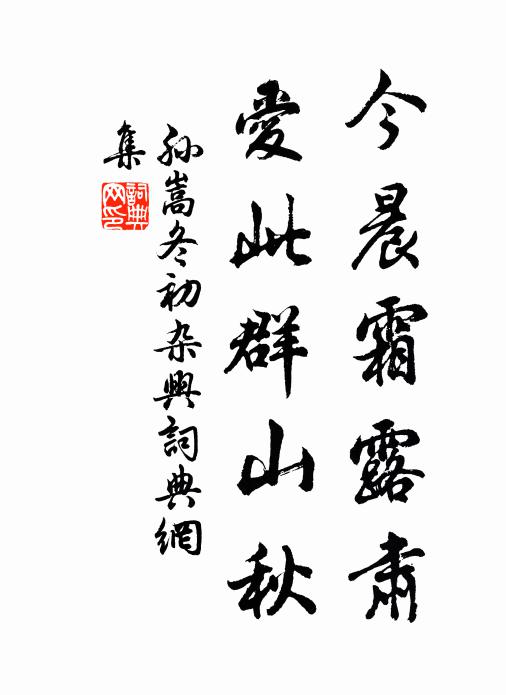 今晨霜露肅
愛此群山秋
孙嵩冬初杂興詞典網
集
詞典
网印